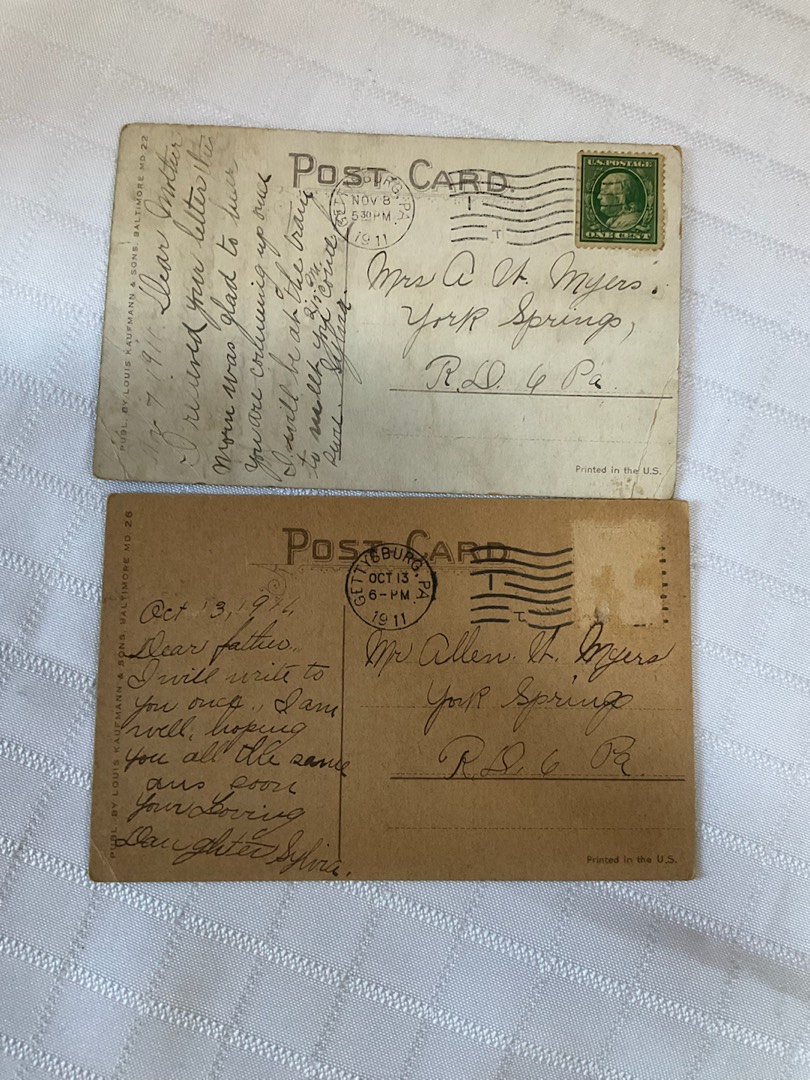 POST CARD
PUBL. BY LOUIS KAUFMANN & SONS, BALTIMORE MD. 22
7 1911
Dear Mother
I received your letter this
Morn was glad to hear
you are comming up and
I will be at the train
to meet you
Sylvia
GETTYSBURG, PA.
NOV 8
530 PM
1911
U.S. POSTAGE
ONE CENT
Mrs A W. Myers.
York Springs,
R.D. 6 Pa.
Printed in the U.S.
POST CARD
PUBL. BY LOUIS KAUFMANN & SONS, BALTIMORE MD. 28
Oct 13, 1911
Dear father,
I will write to
you once, I am
well, hoping
you all the same
ans soon
Your Loving
Daughter Sylvia.
GETTYSBURG, PA.
OCT 13
6-PM
1911
Mr Allen W. Myers
York Springs
R.D. 6 Pa.
Printed in the U.S.